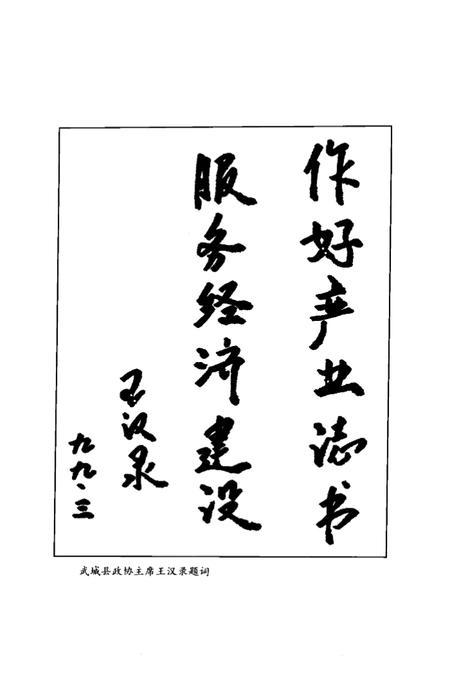 作好产业志书
服务经济建设
王汉录
九九·三
武城县政协主席王汉录题词